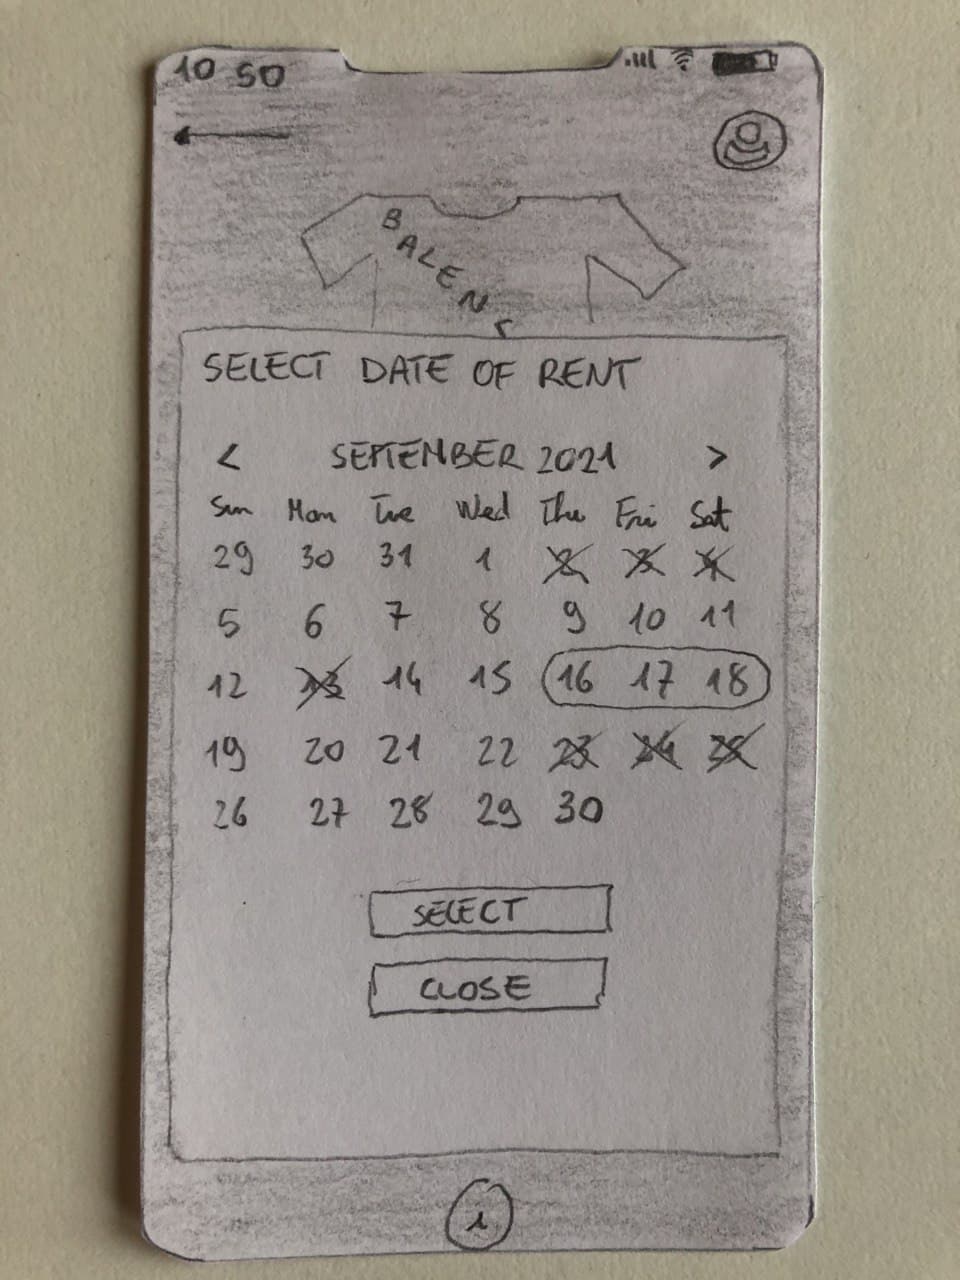 10 50
BALEN
SELECT DATE OF RENT
< SEPTEMBER 2021 >
Sun Mon Tue Wed Thu Fri Sat
29 30 31 1 2 3 4
5 6 7 8 9 10 11
12 13 14 15 16 17 18
19 20 21 22 23 24 25
26 27 28 29 30
SELECT
CLOSE
i